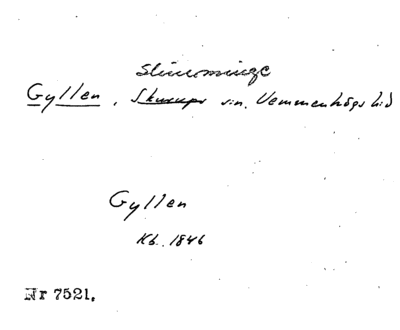 Slimminge
Gyllen, Skurups sn. Vemmenhögs hd
Gyllen
Kb. 1846
Nr 7521.